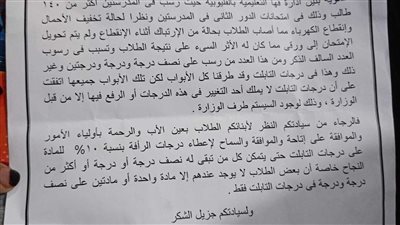 بنين إدارة بها التعليمية بالقليوبية حيث رسب فى المدرستين أكثر من ١٤٠
طالب وذلك فى امتحانات الدور الثانى فى المدرستين ونظرا لحالة تخفيف الأحمال
وانقطاع الكهرباء مما أصاب الطلاب بحالة من الإرتباك أثناء الإنقطاع ولم يتم تحويل
الإمتحان إلى ورقى مما كان له الأثر السىء على نتيجة الطلاب وتسبب فى رسوب
العدد السالف الذكر ومن هذا العدد من رسب على نصف درجة ودرجة ودرجتين وغير
ذلك وهذا فى درجات التابلت وقد طرقنا كل الأبواب لكن تلك الأبواب جميعها اتفقت
على أن درجات التابلت لا يملك أحد التغيير فى هذه الدرجات أو الرفع فيها إلا من قبل
الوزارة ، وذلك لوجود السيستم طرف الوزارة .
فالرجاء من سيادتكم النظر لأبنائكم الطلاب بعين الأب والرحمة بأولياء الأمور
والموافقة على إتاحة والموافقة والسماح لإعطاء درجات الرأفة بنسبة ١٠% للمادة
على درجات التابلت حتى يتمكن كل من تبقى له نصف درجة أو درجة أو أكثر من
النجاح خاصة أن بعض الطلاب لا يوجد عندهم إلا مادة واحدة أو مادتين على نصف
درجة ودرجة فى درجات التابلت فقط .
ولسيادتكم جزيل الشكر